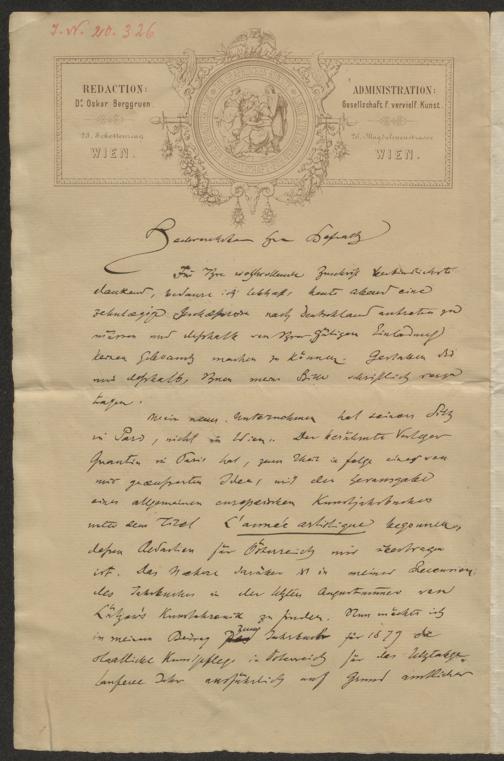 J. N. 20.326
REDACTION:
Dr. Oskar Berggruen
23. Schottenring
WIEN.
ADMINISTRATION:
Gesellschaft f. vervielf. Kunst.
26. Magdalenenstrasse
WIEN.
Hochverehrter Herr Hofrath
Für Ihre wohlwollende Zuschrift verbindlichst
dankend, bedaure ich lebhaft, heute abend eine
zehntägige nach Deutschland antreten zu
müssen und deßhalb von Ihrer gütigen Einladung
keinen Gebrauch machen zu können. Gestatten Sie
mir deßhalb, Ihnen meine Bitte schriftlich vorzu
tragen.
Mein neues Unternehmen hat seinen Sitz
in Paris, nicht in Wien. Der berühmte Verleger
Quantin in Paris hat, zum Theil in folge einer von
mir geäusserten Idee, mit der Herausgabe
eines allgemeinen europäischen Kunstjahrbuches
unter dem Titel L'année artistique begonnen,
dessen Redaction für Österreich mir übertragen
ist. Das Nähere darüber ist in meiner Recension
des Jahrbuches in der letzten Augustnummer von
Lützow's Kunstchronik zu finden. Nun möchte ich
in meinem Beitrag zum Jahrbuch für 1879 die
staatliche Kunstpflege in Österreich für das letztabge
laufene Jahr ausführlich auf Grund amtlicher